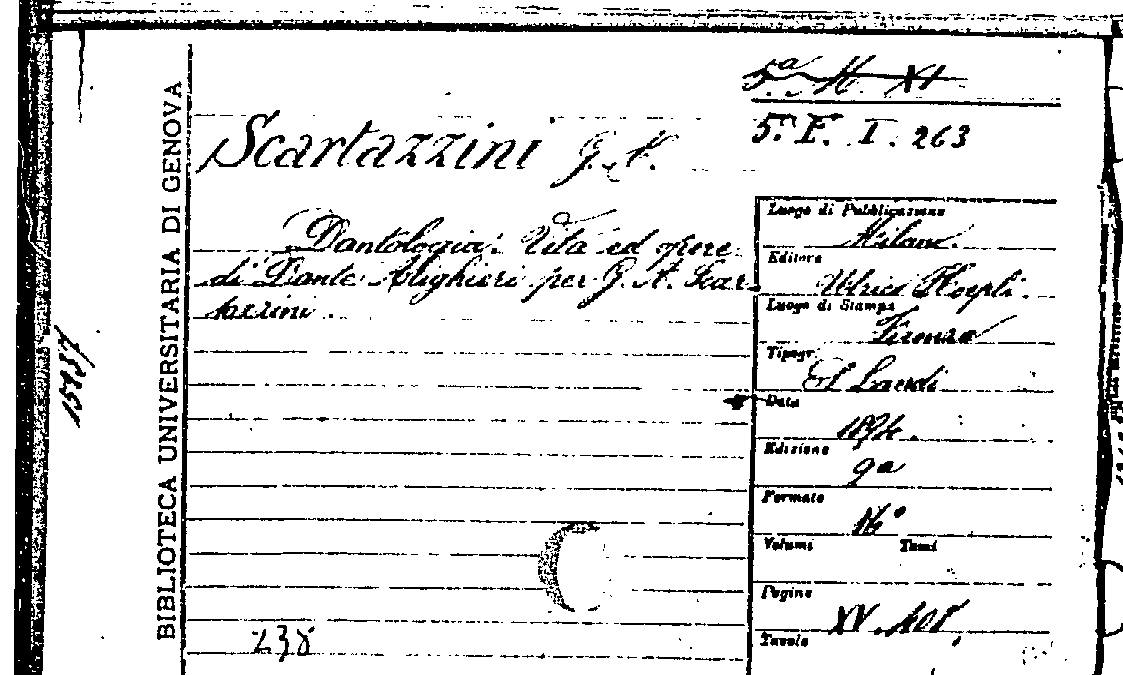 5.ª M. XI
5. F. I. 263
BIBLIOTECA UNIVERSITARIA DI GENOVA
Scartazzini G. A.
Dantologia. Vita ed opere
di Dante Alighieri per G. A. Scar-
tazzini.
Luogo di Pubblicazione
Milano.
Editore
Ulrico Hoepli.
Luogo di Stampa
Firenze
Tipogr.
S. Landi
Data
1894.
Edizione
Formato
16°
Volumi Tomi
Pagine
XV. 408.
Tavole
238